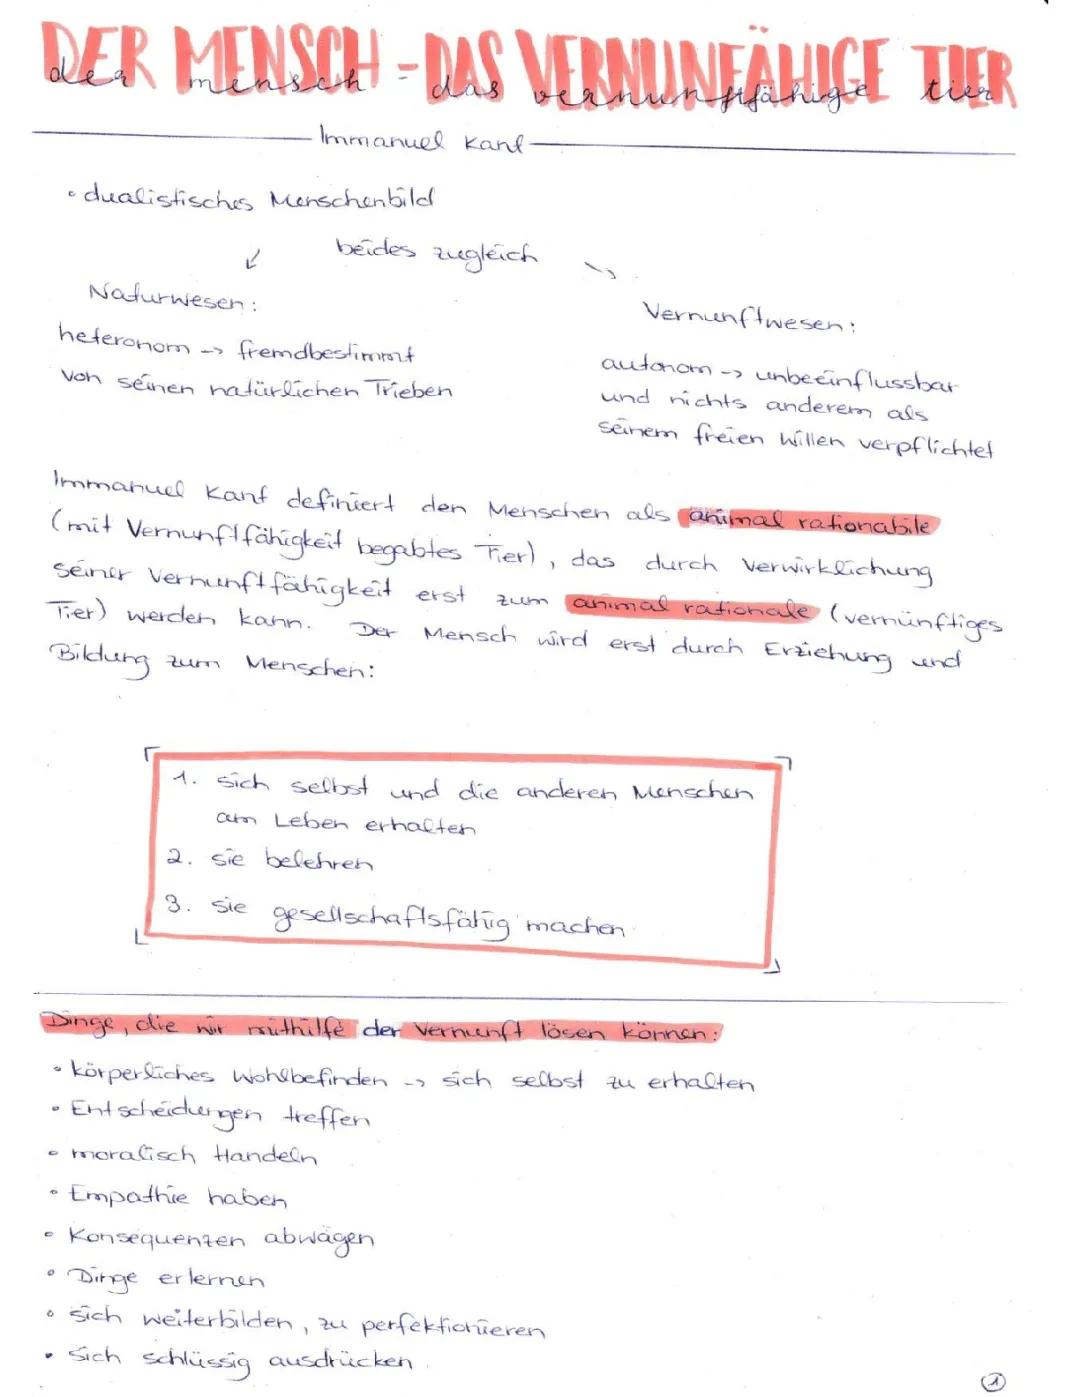 DER MENSCH - DAS VERNUNFÄHIGE TIER
der mensch - das vernunftfähige tier
Immanuel Kant
• dualistisches Menschenbild
beides zugleich
Naturwesen:
heteronom -> fremdbestimmt
von seinen natürlichen Trieben
Vernunftwesen:
autonom -> unbeeinflussbar
und nichts anderem als
seinem freien Willen verpflichtet
Immanuel Kant definiert den Menschen als animal rationabile
(mit Vernunftfähigkeit begabtes Tier), das durch Verwirklichung
seiner Vernunftfähigkeit erst zum animal rationale (vernünftiges
Tier) werden kann. Der Mensch wird erst durch Erziehung und
Bildung zum Menschen:
1. sich selbst und die anderen Menschen
am Leben erhalten
2. sie belehren
3. sie gesellschaftsfähig machen
Dinge, die wir mithilfe der Vernunft lösen können:
• körperliches Wohlbefinden -> sich selbst zu erhalten
• Entscheidungen treffen
• moralisch Handeln
• Empathie haben
• Konsequenzen abwägen
• Dinge erlernen
• sich weiterbilden, zu perfektionieren
• sich schlüssig ausdrücken
1